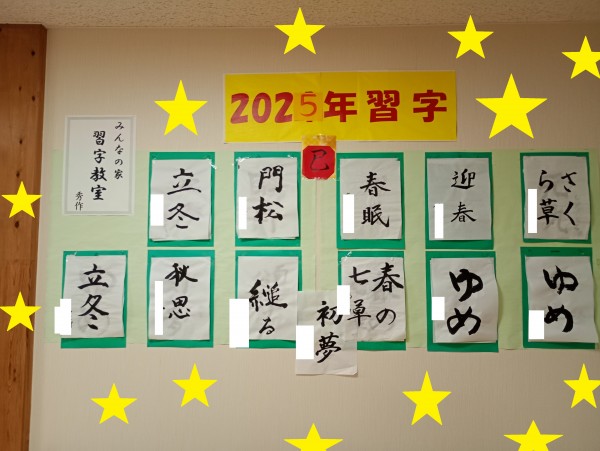 2025年習字
巳
みんなの家
習字教室
秀作
立冬
門松
春眠
迎春
さく
ら草
立冬
秋思
縋る
春の
七草
初夢
ゆめ
ゆめ